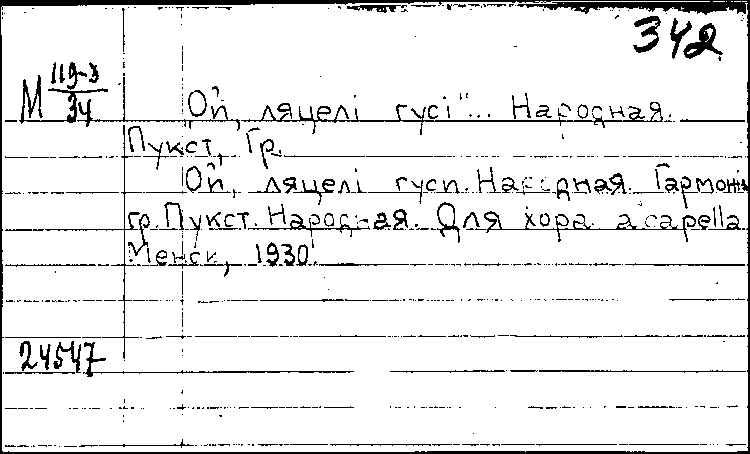 342
М 119-3/34
"Ой, ляцелі гусі"... Народная.
Пукст, Гр.
Ой, ляцелі гусп. Народная. Гармонія
гр. Пукст. Народная. Для хора a capella
Менск, 1930.
24547